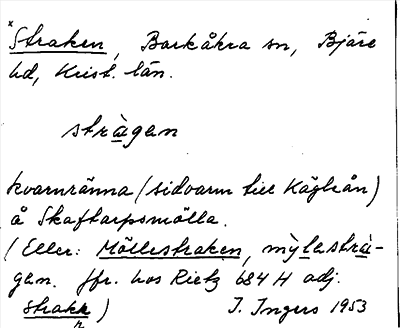 *Straken, Barkåkra sn, Bjäre
hd, Krist. län.
stràgen
kvarnränna (sidoarm till Kägleån)
å Skaftarpsmölla.
(Eller: Möllestraken, mỳlastrà-
gen. Jfr. hos Rietz 684 H adj.
strakk) J. Ingers 1953